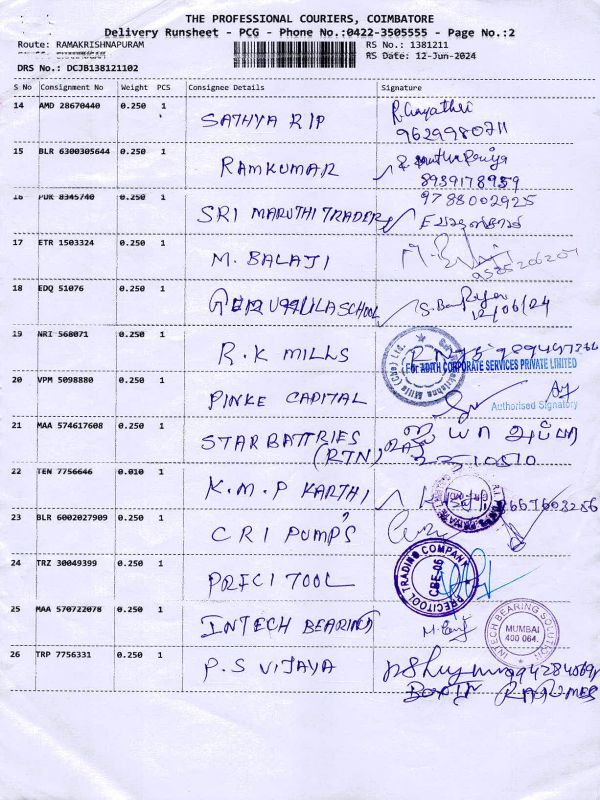 THE PROFESSIONAL COURIERS, COIMBATORE
Delivery Runsheet - PCG - Phone No.:0422-3505555 - Page No.:2
Route: RAMAKRISHNAPURAM RS No.: 1381211
RS Date: 12-Jun-2024
DRS No.: DCJB138121102
S No Consignment No Weight PCS Consignee Details Signature
14 AMD 28670440 0.250 1 SATHYA RIP R.Gayathri
9629980711
15 BLR 6300305644 0.250 1 RAMKUMAR
8939178959
16 PUK 8345740 0.250 1 SRI MARUTHI TRADERS 9788002925
17 ETR 1503324 0.250 1 M. BALAJI
9585206207
18 EDQ 51076 0.250 1 SCHOOL
12/06/24
19 NRI 568071 0.250 1 R.K MILLS
For ADITH CORPORATE SERVICES PRIVATE LIMITED
20 VPM 5098880 0.250 1 PINKE CAPITAL
Authorised Signatory
21 MAA 574617608 0.250 1 STAR BATTRIES
(RTN)
22 TEN 7756646 0.010 1 K.M.P KARTHI
23 BLR 6002027909 0.250 1 CRI PUMP'S
24 TRZ 30049399 0.250 1 PRECI TOOL PRECITOOL TRADING COMPANY CBE-06
25 MAA 570722078 0.250 1 INTECH BEARING INTECH BEARING SOLUTION MUMBAI 400 064.
26 TRP 7756331 0.250 1 P.S VIJAYA